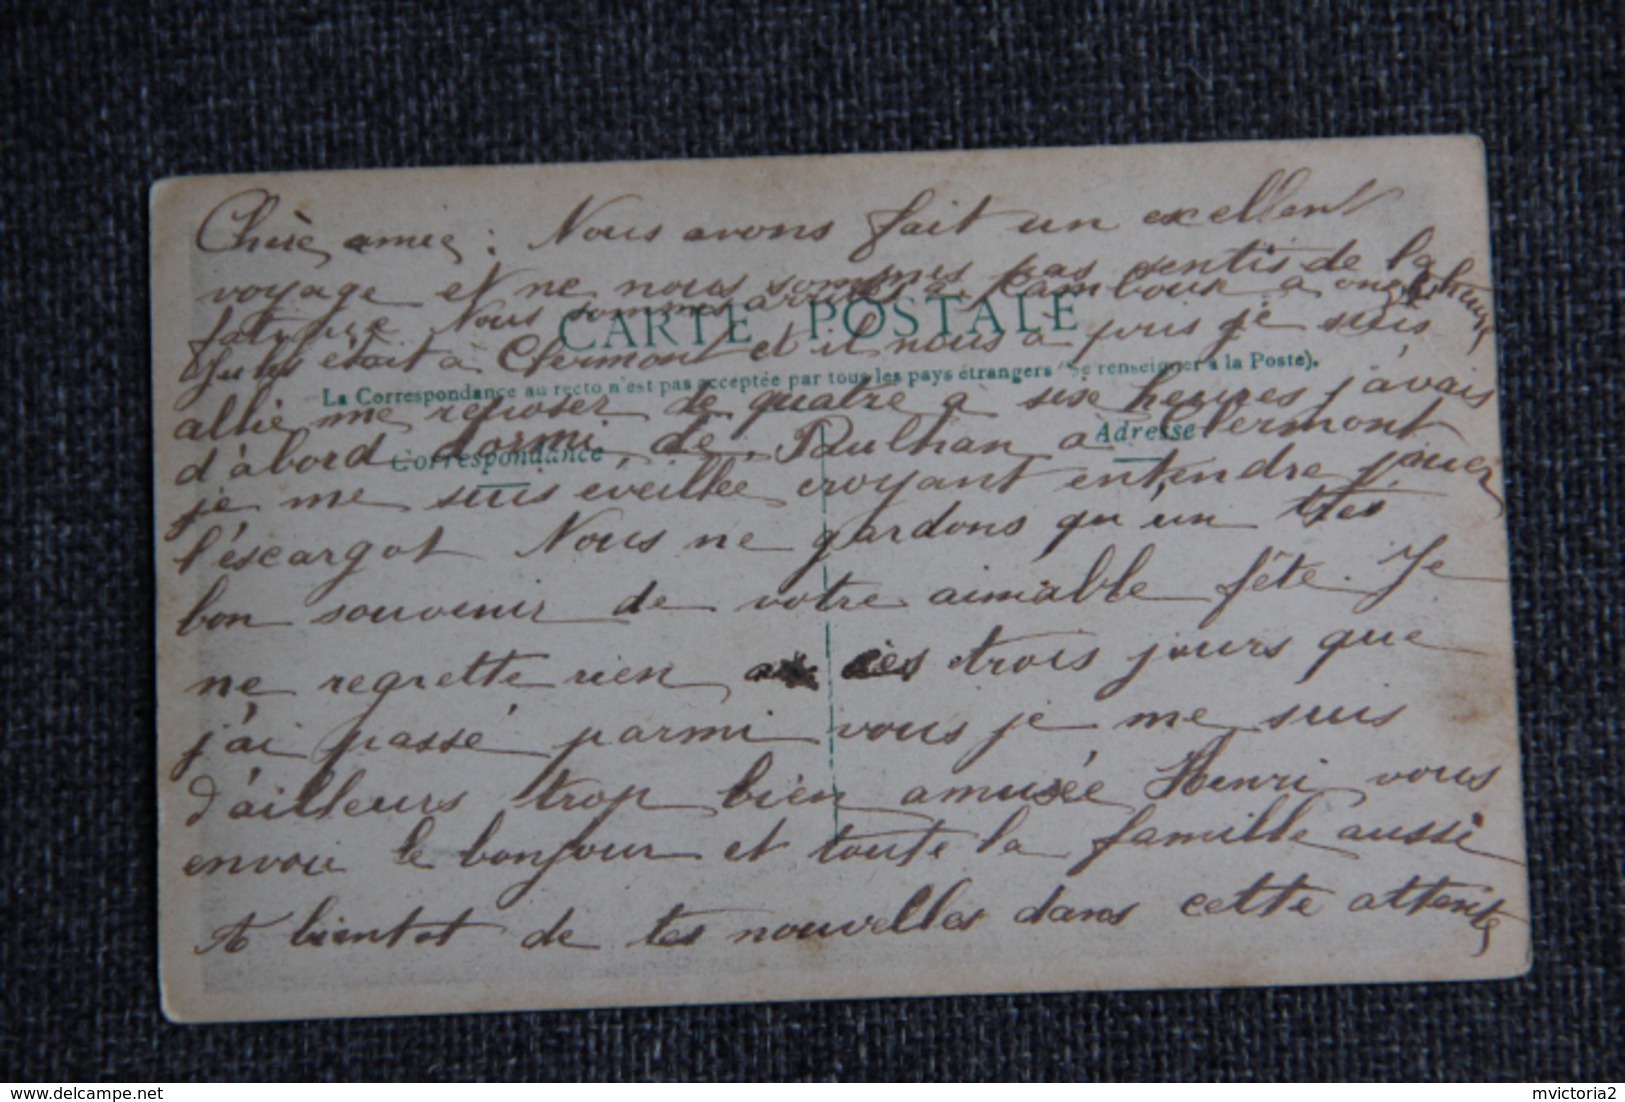 Chère amie : Nous avons fait un excellent
voyage et ne nous sommes pas sentis de la
fatigue Nous sommes arrivés à Cambous à onze heures
Jules était à Clermont et il nous a pris je suis
allie me reposer de quatre à sise heures j'avais
d'abord dormi de Paulhan a Clermont
je me suis éveillée croyant entendre jouer
l'escargot Nous ne gardons qu'un très
bon souvenir de votre aimable fête. Je
ne regrette rien ces trois jours que
j'ai passé parmi vous je me suis
d'ailleurs trop bien amusée Henri vous
envoie le bonjour et toute la famille aussi
A bientot de tes nouvelles dans cette attente
CARTE POSTALE
La Correspondance au recto n'est pas acceptée par tous les pays étrangers (Se renseigner à la Poste).
Correspondance
Adresse
delcampe.net
mvictoria2